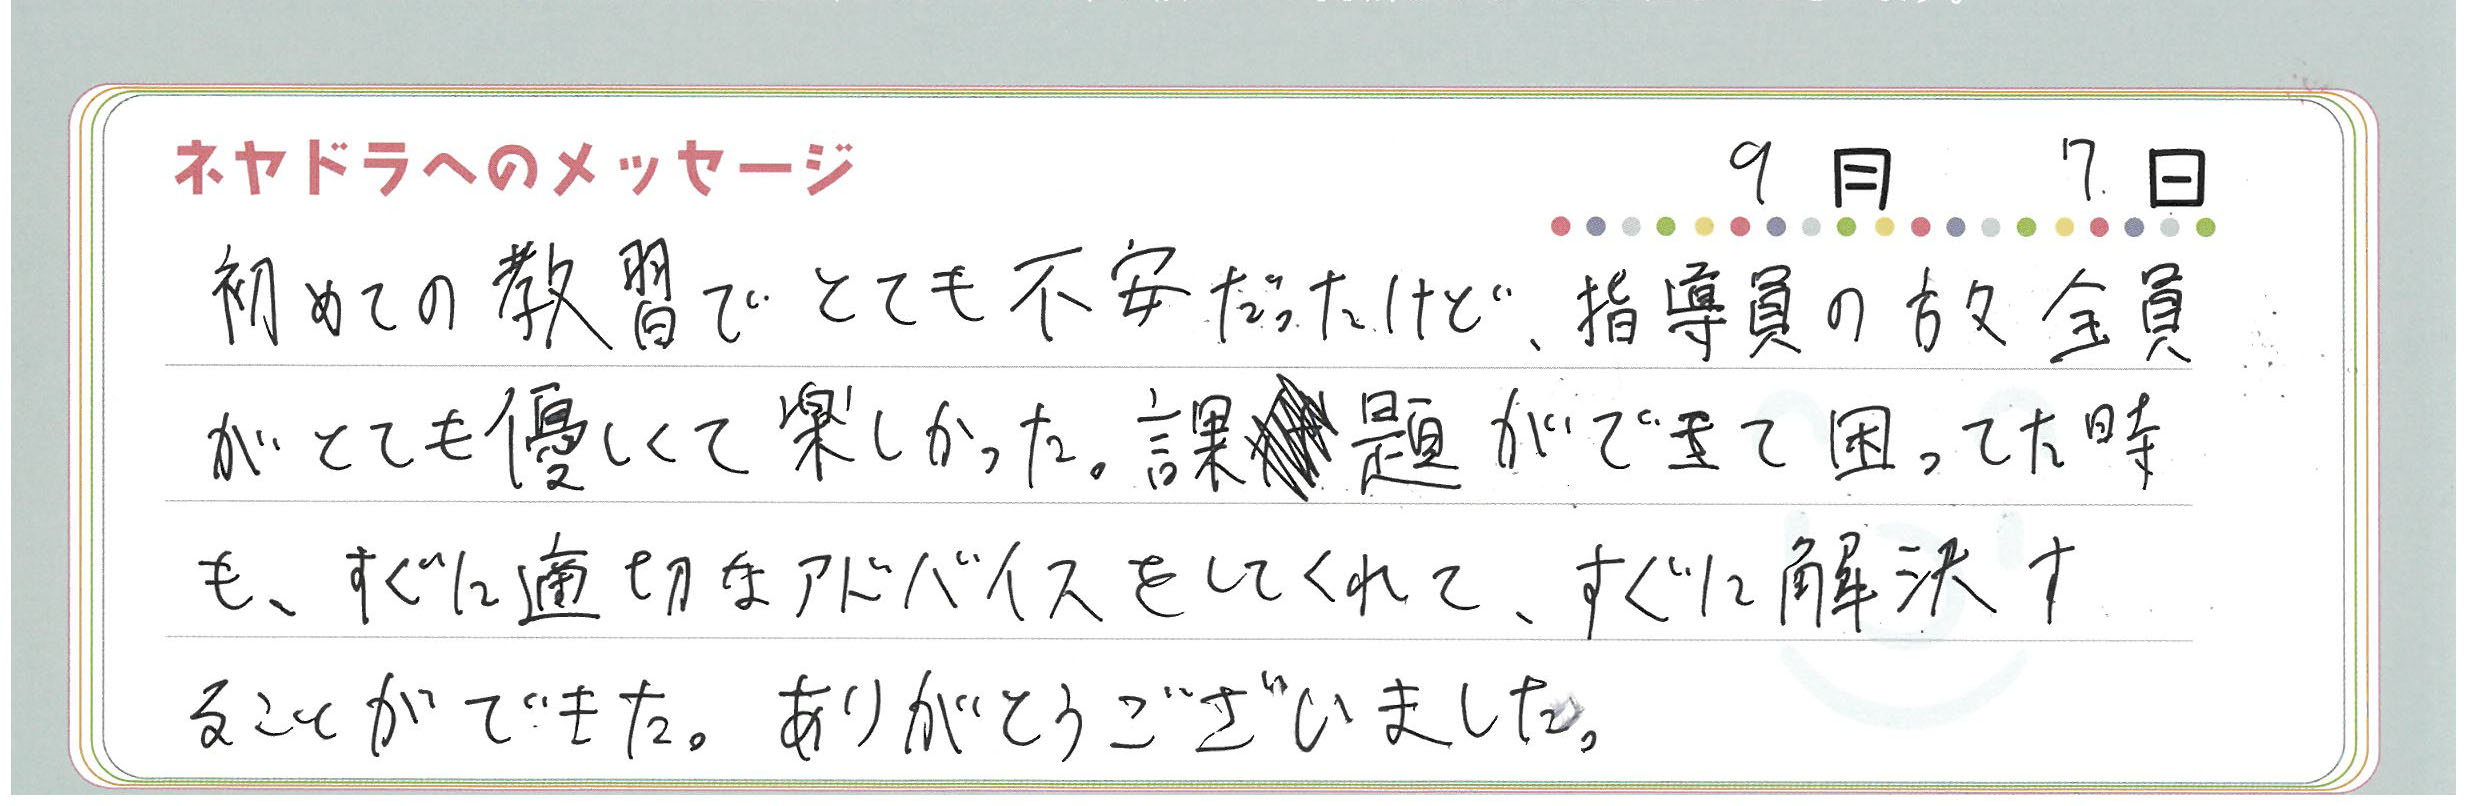 ネヤドラへのメッセージ
9月 7日
初めての教習でとても不安だったけど、指導員の方々全員
がとても優しくて楽しかった。課題ができて困ってた時
も、すぐに適切なアドバイスをしてくれて、すぐに解決す
ることができた。ありがとうございました。